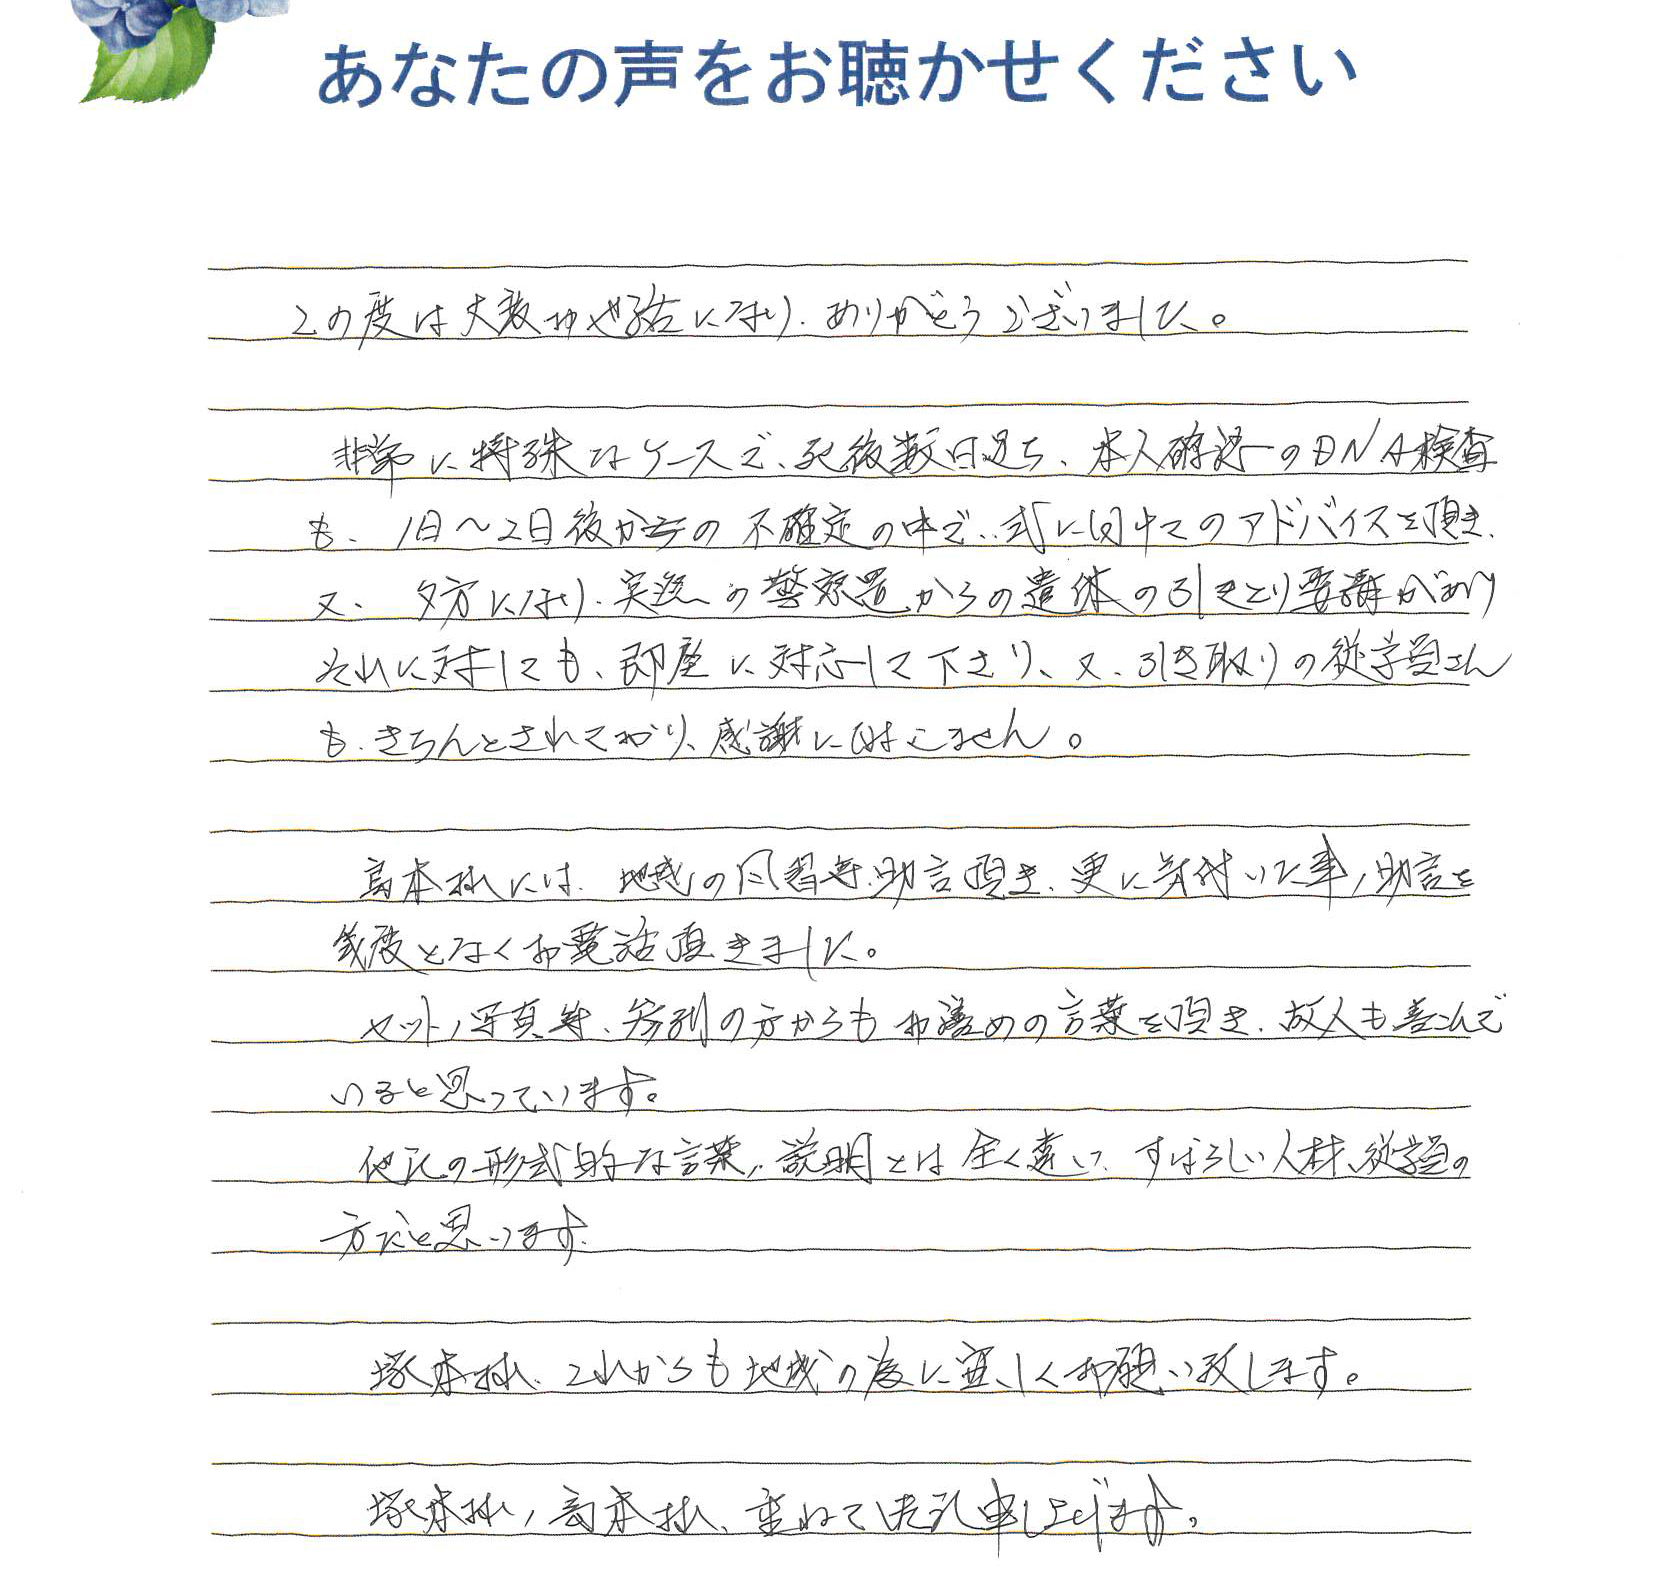 あなたの声をお聴かせください
この度は大変お世話になり、ありがとうございました。
非常に特殊なケースで、死後数日過ち、本人確認のDNA検査
も、1日～2日後からの不確定の中で、式に向けてのアドバイスを頂き、
又、夕方になり、突然の警察署からの遺体の引きとり要請があり
それに対しても、即座に対応して下さり、又、引き取りの従学員さん
も、きちんとされており、感謝にはたえません。
高本様には、地域の風習等、助言頂き、更に気付いた事、助言を
幾度となくお電話頂きました。
セット、写真等、参列の方からもお誉めの言葉を頂き、故人も喜こんで
いると思っています。
他社の形式的な言葉、説明とは全く違い、すばらしい人材、従学員の
方だと思います。
塚本様、これからも地域の為に宜しくお願い致します。
塚本様、高本様、重ねて御礼申し上げます。